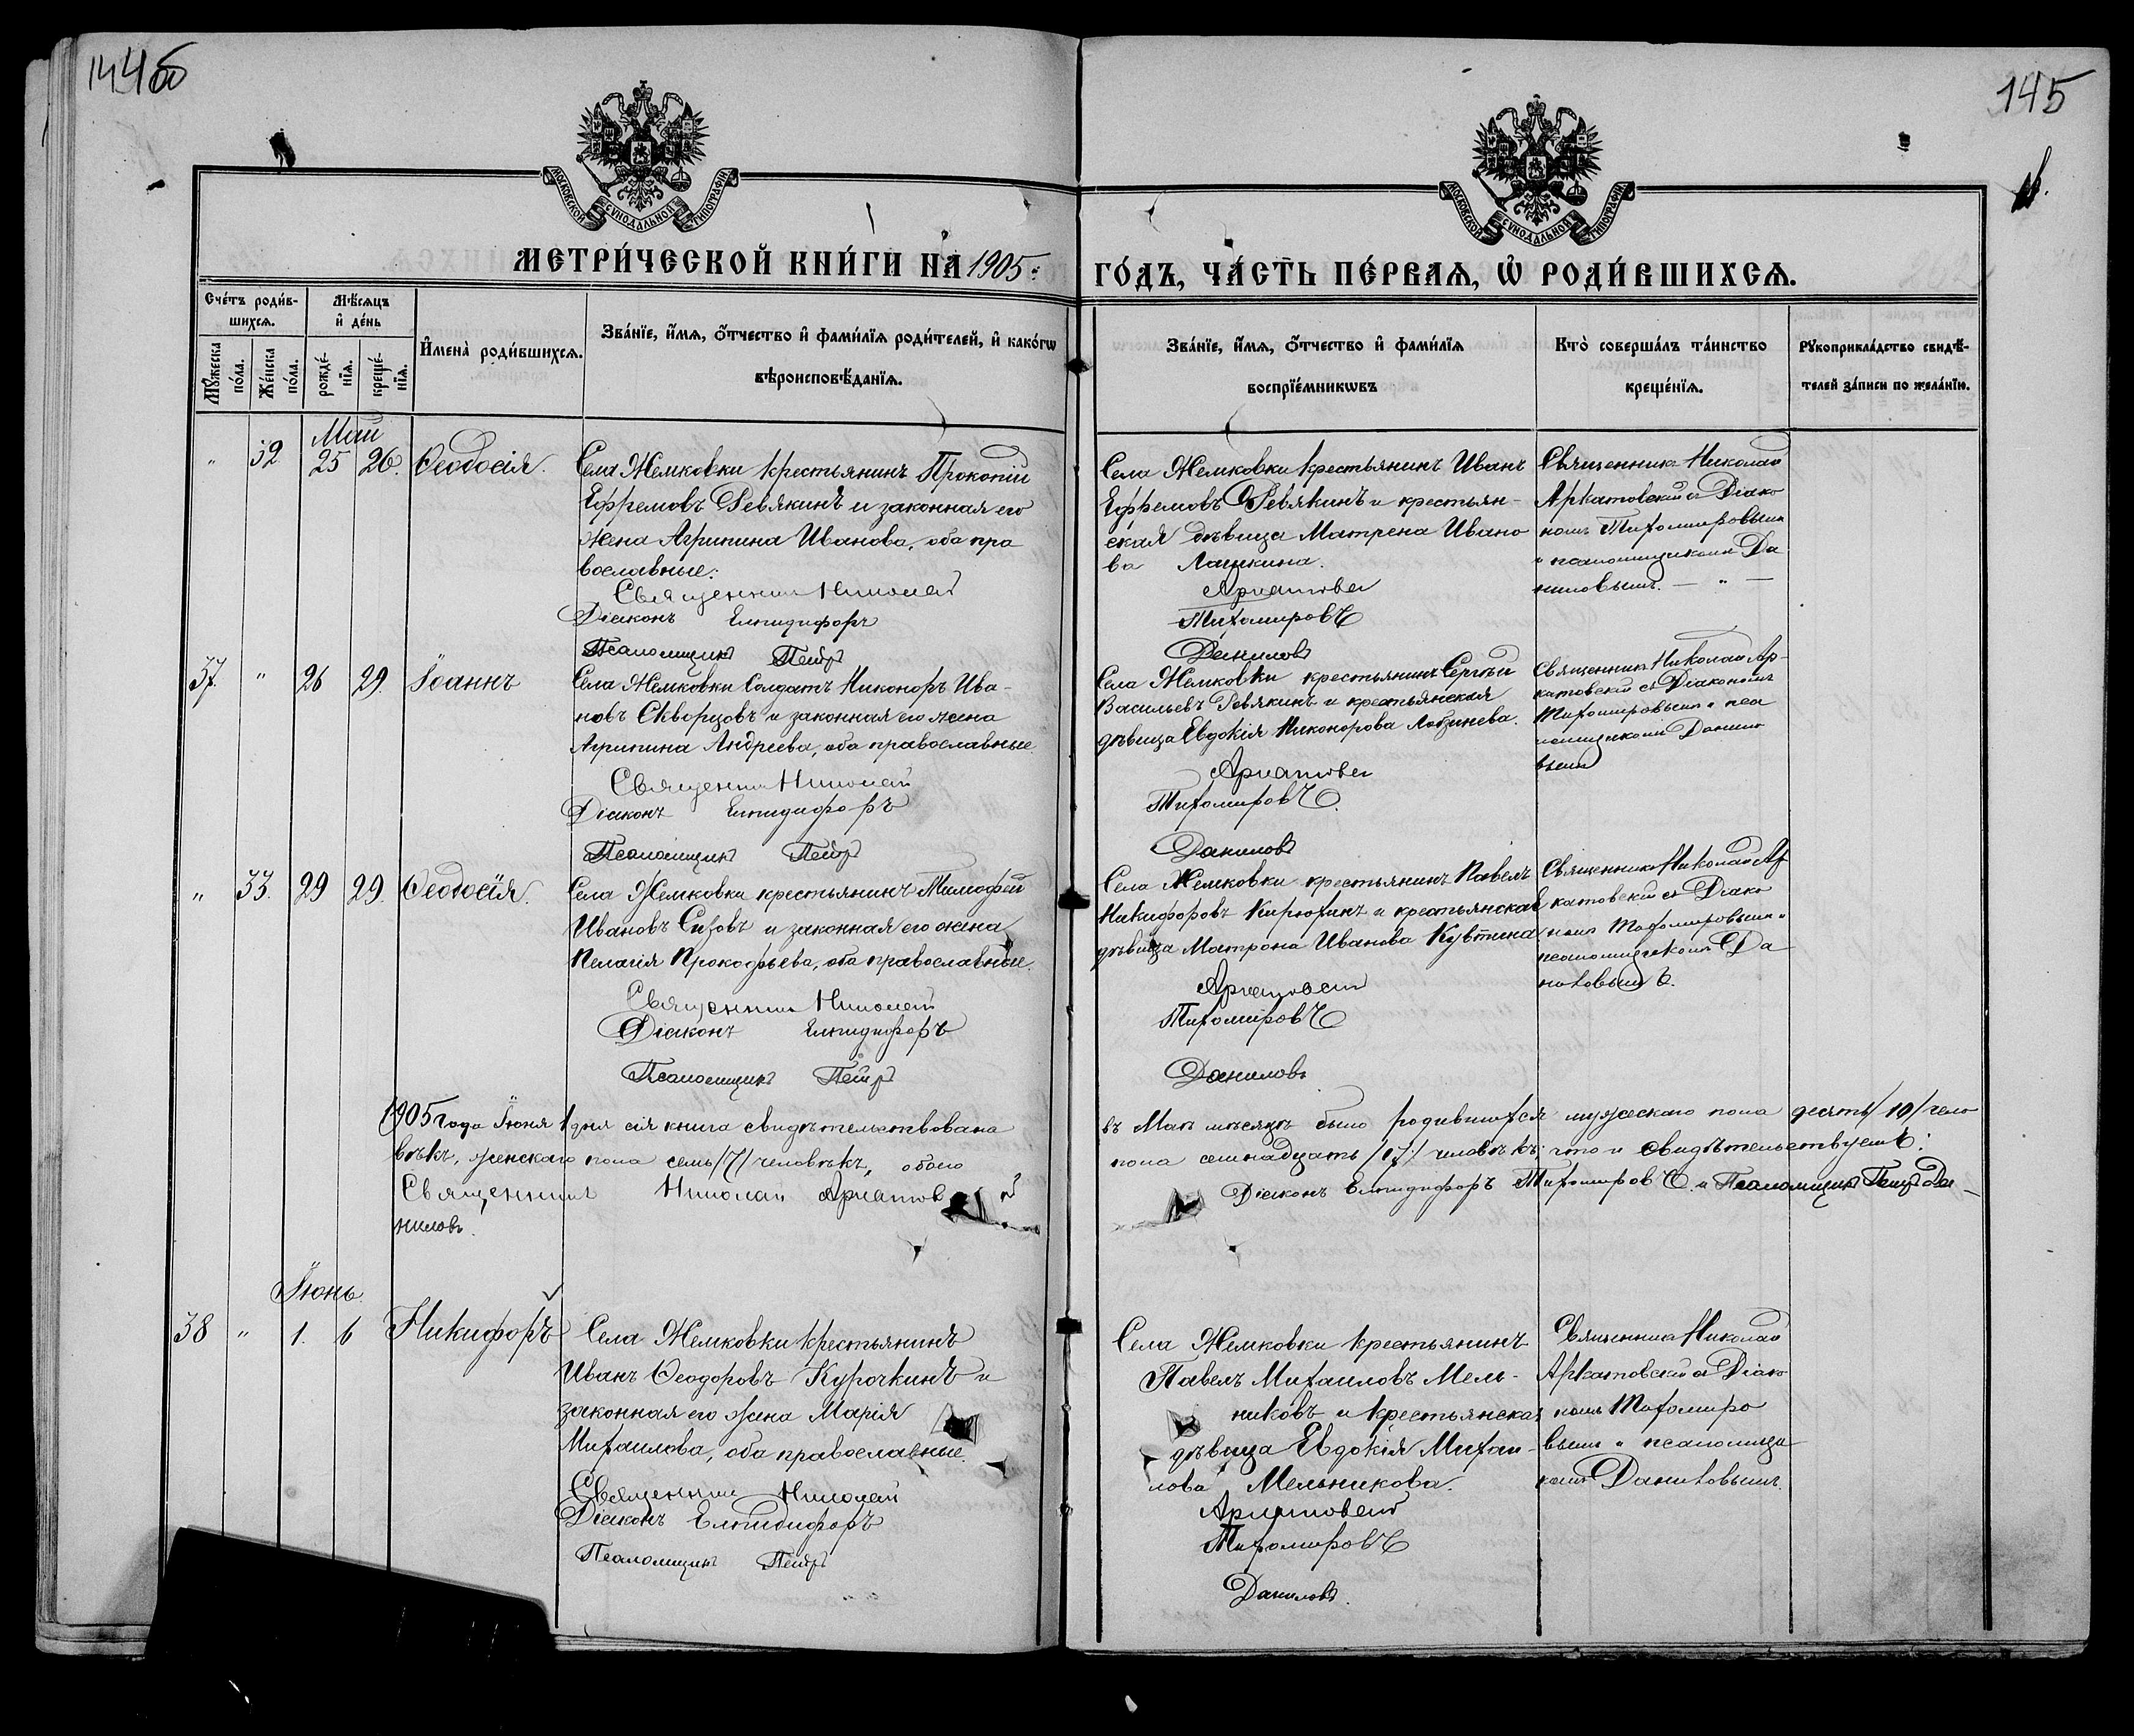 144об
145
МОСКОВСКОЙ СѴНОДАЛЬНОЙ ТИПОГРАФІИ
МОСКОВСКОЙ СѴНОДАЛЬНОЙ ТИПОГРАФІИ
МЕТРИ́ЧЕСКОЙ КНИ́ГИ НА 1905
ГО́ДЪ, ЧА́СТЬ ПЕ́РВАѦ, Ѽ РОДИ́ВШИХСѦ.
Сче́тъ роди́в-
шихсѧ.
Мѣ́сѧцъ
и҆ де́нь
Мꙋ́жеска
по́ла.
Же́нска
по́ла.
рожде́-
нїѧ.
креще́-
нїѧ.
И҆мена̀ роди́вшихсѧ.
Зва́нїе, и҆́мѧ, ѻ҆́тчество и҆ фами́лїѧ роди́телей, и҆ како́гѡ
вѣроисповѣ́данїѧ.
Зва́нїе, и҆́мѧ, ѻ҆́тчество и҆ фами́лїѧ
воспрїе́мникѡвъ
Кто̀ соверша́лъ та́инство
креще́нїѧ.
Рꙋкоприкла́дство свидѣ́-
телей за́писи по жела́нїю.
Май
" 32 25 26. Ѳеодосія.
Села Жемковки крестьянинъ Прокопій
Ефремовъ Ревякинъ и законная его
жена Агрипина Иванова, оба пра
вославные.
Священникъ Николай
Діаконъ Елпидифоръ
Псаломщикъ Петръ
Села Жемковки крестьянинъ Иванъ
Ефремовъ Ревякинъ и крестьян-
ская дѣвица Матрена Ивано
ва Лашкина.
Аркатовскій
Тихомировъ
Даниловъ
Священникъ Николай
Аркатовскій съ Діако
номъ Тихомировымъ
и псаломщикомъ Да
ниловымъ. — " —
37. " 26 29. Іоаннъ
Села Жемковки Солдатъ Никоноръ Ива-
новъ Скворцовъ и законная его жена
Агрипина Андреева, оба православные.
Священникъ Николай
Діаконъ Елпидифоръ
Псаломщикъ Петръ
Села Жемковки крестьянинъ Сергѣй
Васильевъ Ревякинъ и крестьянская
дѣвица Евдокія Никонорова
Аркатовскій
Тихомировъ.
Даниловъ
Священникъ Николай Ар-
катовскій съ Діакономъ
Тихомировымъ и пса
ломщикомъ Данило
вымъ
" 33. 29 29. Ѳеодосія.
Села Жемковки крестьянинъ Тимофей
Ивановъ Сизовъ и законная его жена
Пелагія Прокофьева, оба православные.
Священникъ Николай
Діаконъ Елпидифоръ
Псаломщикъ Петръ
Села Жемковки крестьянинъ Павелъ
Никифоровъ Кирюхинъ и крестьянская
дѣвица Матрона Иванова
Аркатовскій
Тихомировъ
Даниловъ
Священникъ Николай Ар
катовскій съ Діако
номъ Тихомировымъ и
псаломщикомъ Да
ниловымъ.
1905 года Іюня 1 дня сія книга свидѣтельствована
въ Маѣ мѣсяцѣ было родившихся мужескаго пола десять /10/ чело
вѣкъ, женскаго пола семь /7/ человѣкъ, обоего
пола семнадцать /17/ человѣкъ; что и свидѣтельствуемъ:
Священникъ Николай Аркатовскій
Діаконъ Елпидифоръ Тихомировъ. и Псаломщикъ Петръ Да-
ниловъ.
Іюнь
38 " 1. 6 Никифоръ
Села Жемковки крестьянинъ
Иванъ Ѳеодоровъ Курочкинъ и
законная его жена Марія
Михаилова, оба православные.
Священникъ Николай
Діаконъ Елпидифоръ
Псаломщикъ Петръ
Села Жемковки крестьянинъ
Павелъ Михаиловъ Мель-
никовъ и крестьянская
дѣвица Евдокія Михаи-
лова Мельникова.
Аркатовскій
Тихомировъ
Даниловъ.
Священникъ Николай
Аркатовскій съ Діако
номъ Тихомиро
вымъ и псаломщи
комъ Даниловымъ.